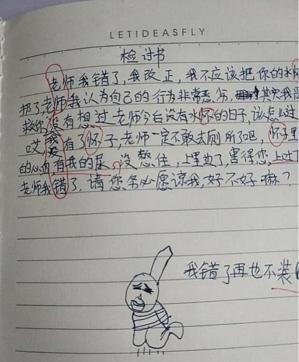 LETIDEASFLY
检讨书
老师我错了,我改正,我不应该把你的水
老师我认为自己的行为非常恶劣,其实我
没有想过,老师今后没有水杯的日子,该怎么过
哎 有了杯子,老师一定不敢去厕所了吧,杯子里
有我的尿,没憋住,上里边了,害得您上吐
老师我错了,请您务必原谅我,好不好嘛?
我错了再也不装